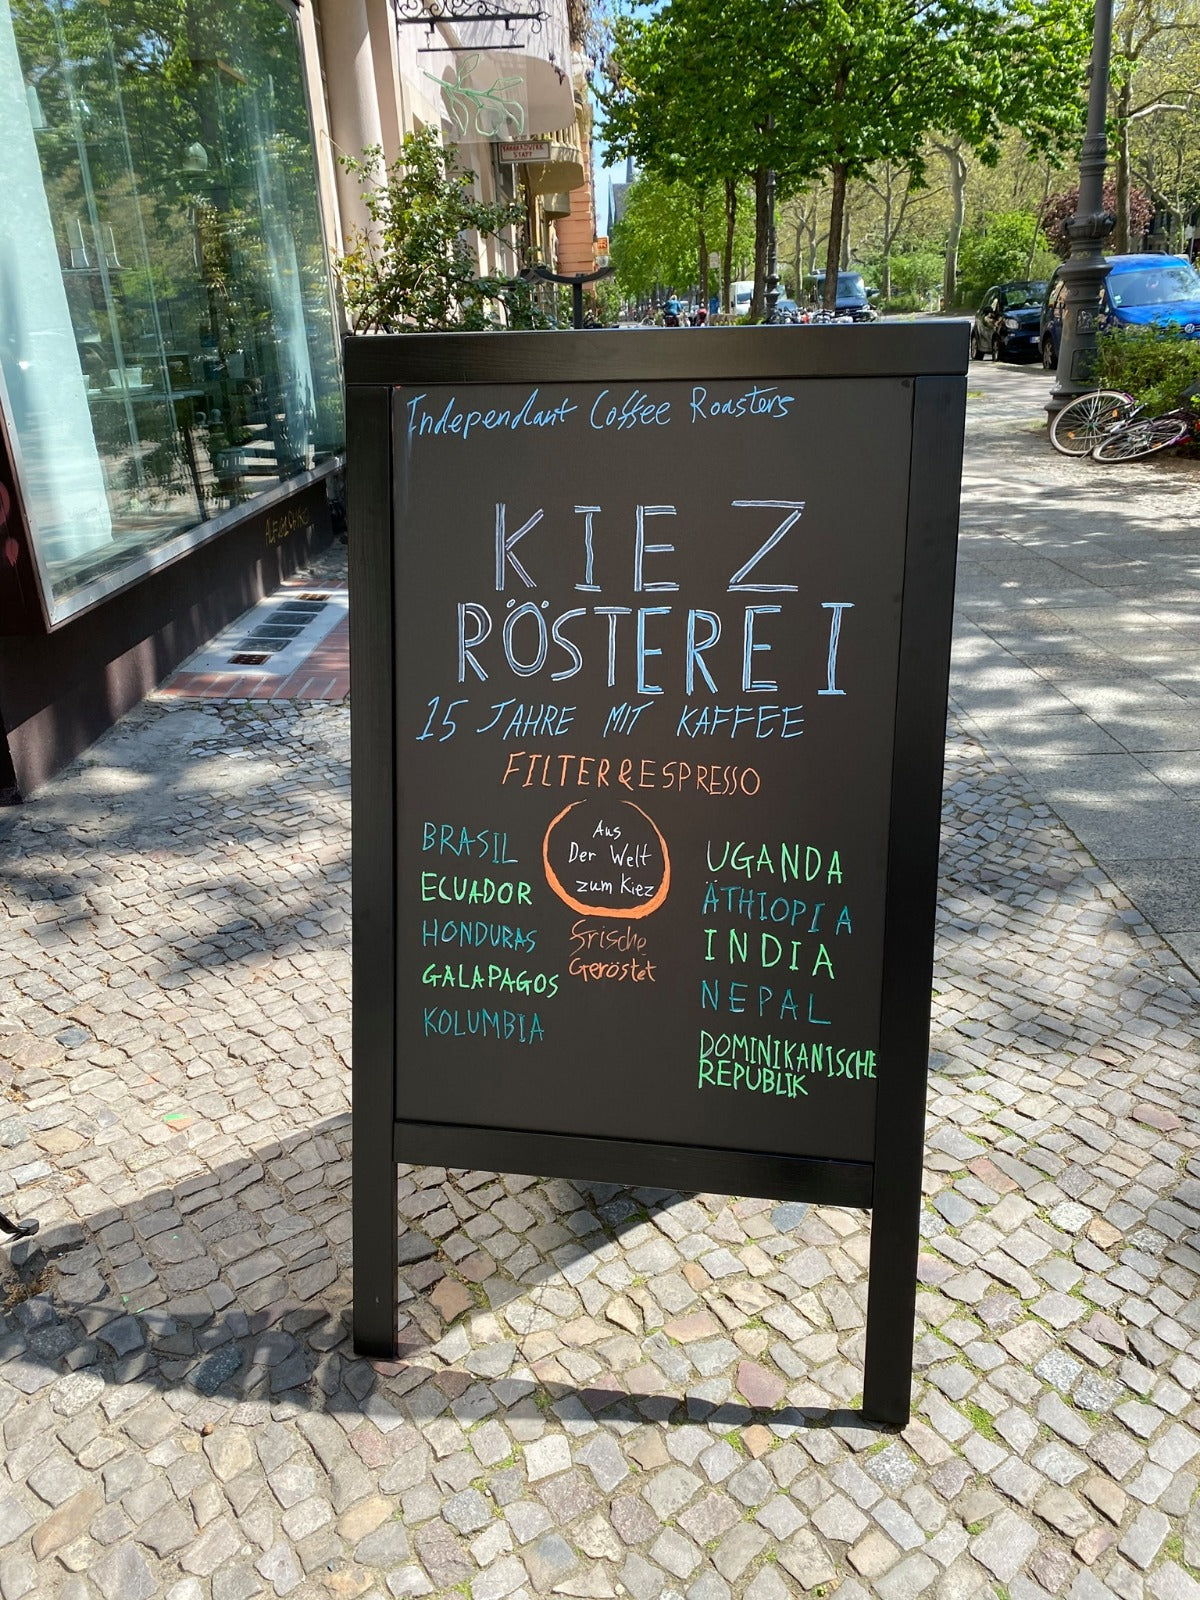 Independant Coffee Roasters
KIEZ
RÖSTEREI
15 JAHRE MIT KAFFEE
FILTER&ESPRESSO
Aus
Der Welt
zum Kiez
Frische
Geröstet
BRASIL
ECUADOR
HONDURAS
GALAPAGOS
KOLUMBIA
UGANDA
ÄTHIOPIA
INDIA
NEPAL
DOMINIKANISCHE
REPUBLIK